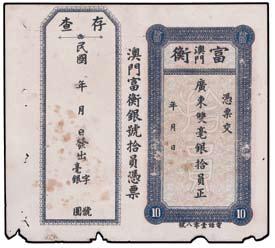 富澳門衡
憑票交
廣東雙毫銀拾員正
年 月 日
電話壹零八號
10 10
澳門富衡銀號拾員憑票
存查
民國 年 月 日發出 字 號
毫銀 圓